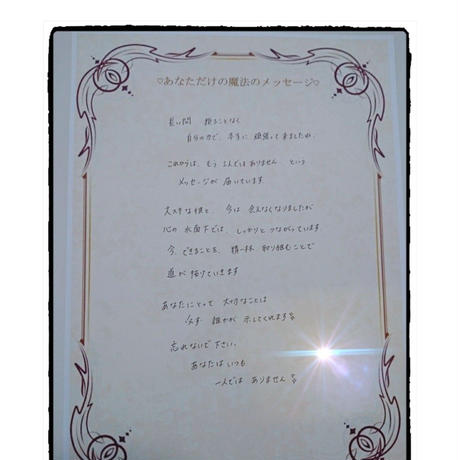 ♡あなただけの魔法のメッセージ♡
長い間 頼ることなく
自分の力で、本当に 頑張って来ましたね。
これからは、もう 1人では ありません という
メッセージが 届いています。
大スキな彼と、今は 会えなくなりましたが
心の 水面下では、しっかりと つながっています
今、できることを、精一杯 取り組むことで
道が 拓けていきます
あなたにとって 大切なことは
必ず 誰かが 示してくれます
忘れないで 下さい。
あなたは いつも
一人では ありません